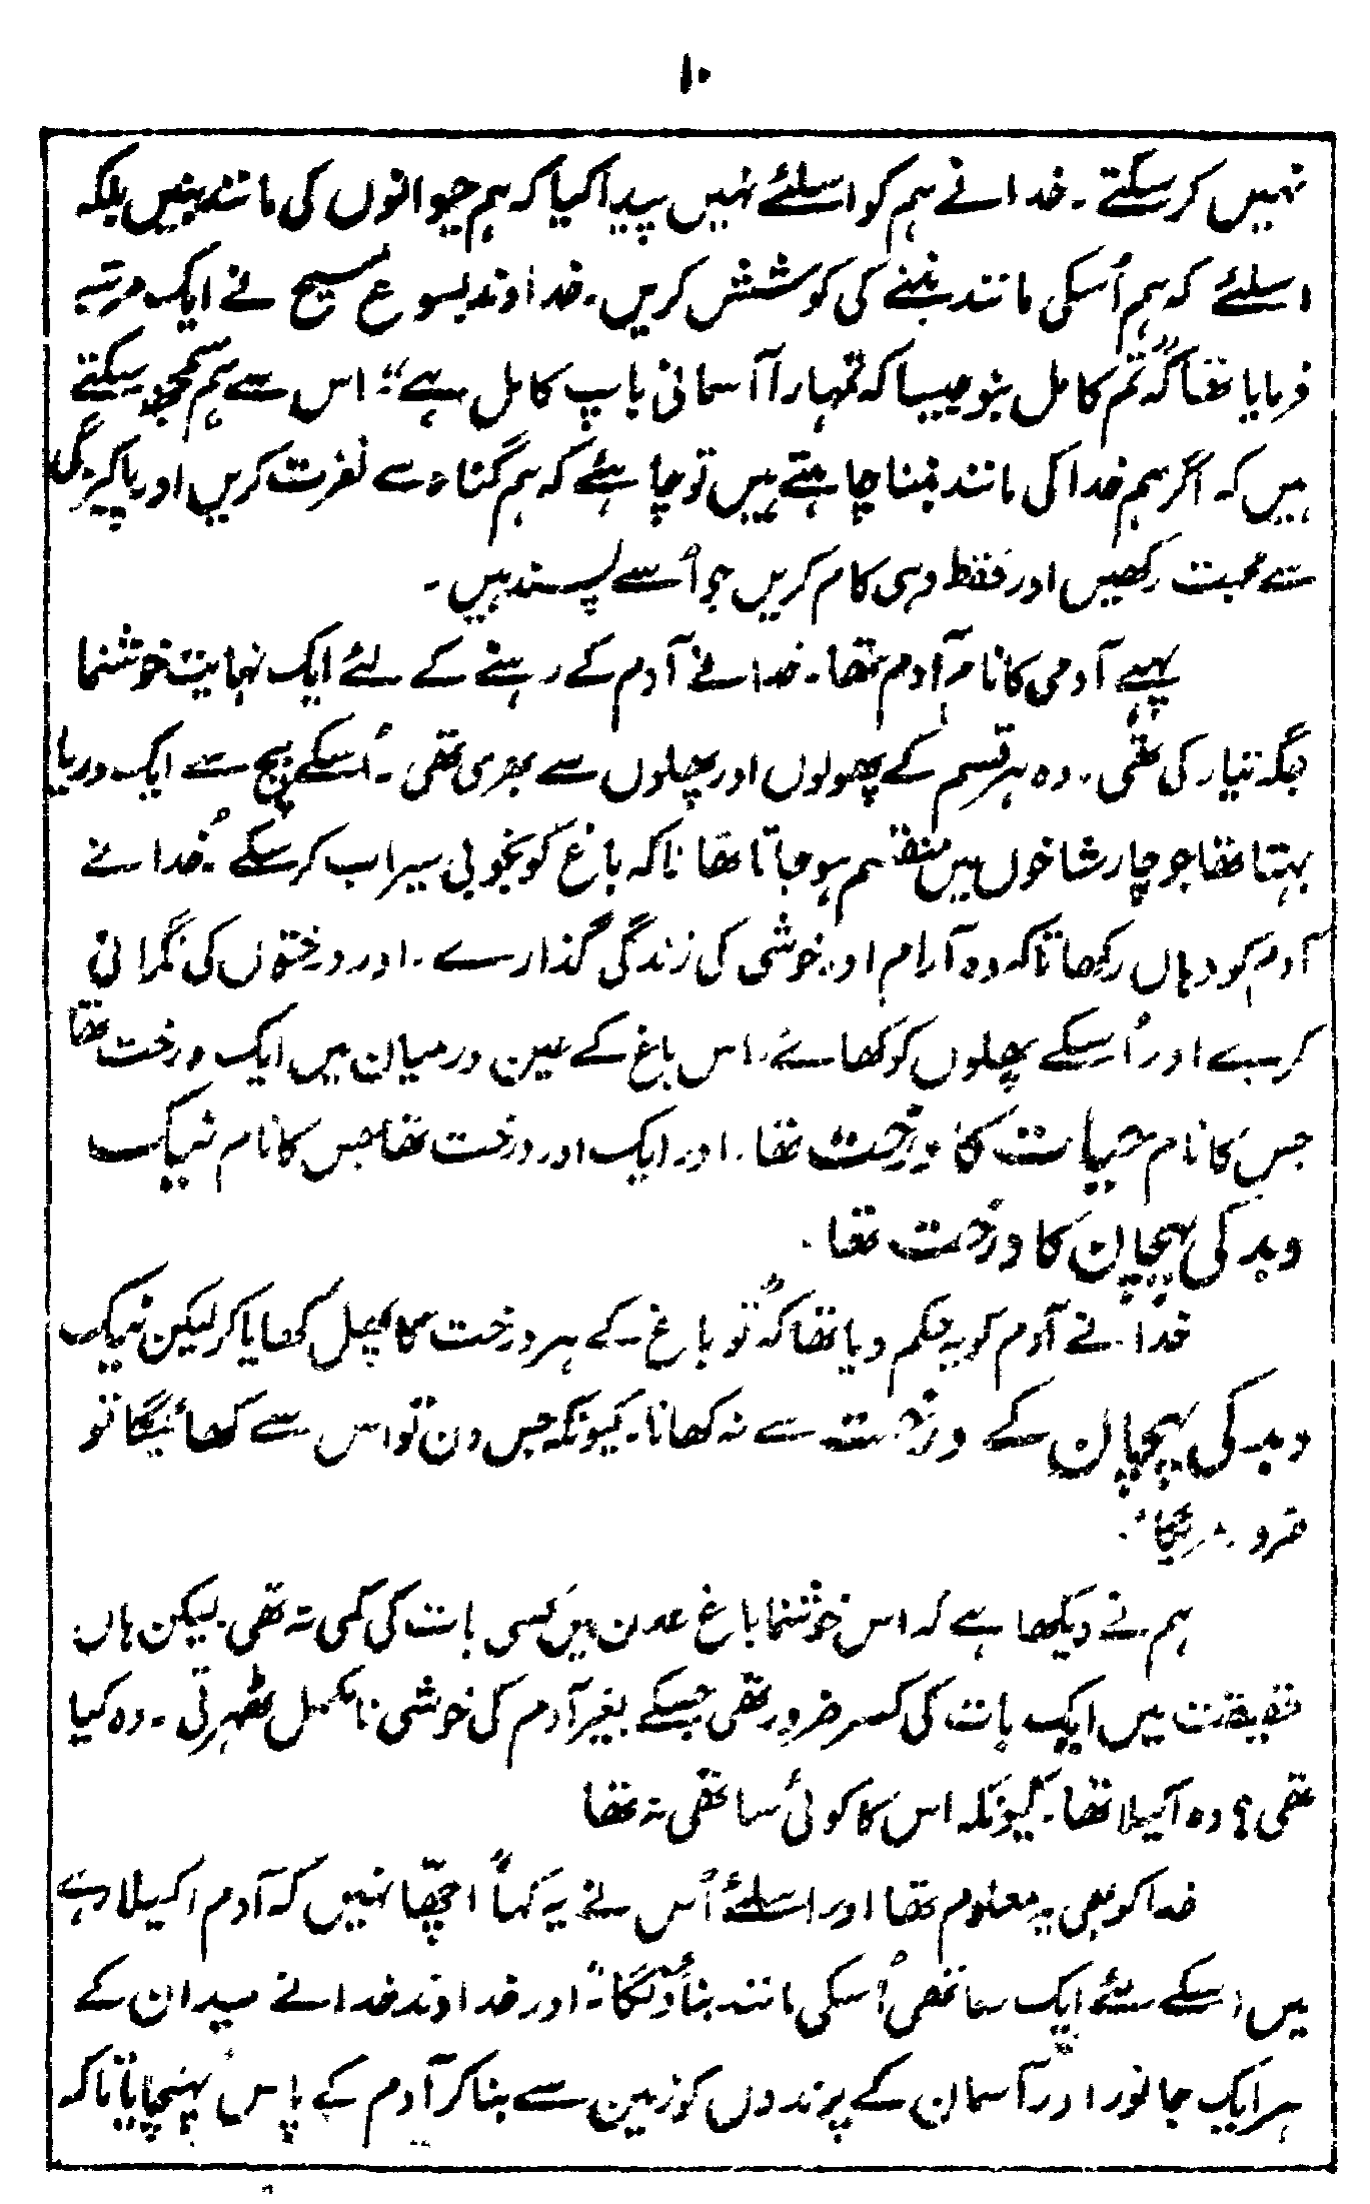 ۱۰
نہیں کر سکتے ۔ خدا نے ہم کو اسلئے نہیں پیدا کیا کہ ہم حیوانوں کی مانند بنیں بلکہ
اسلئے کہ ہم اُسکی مانند بننے کی کوشش کریں ۔ خداوند یسوع مسیح نے ایک مرتبہ
فرمایا تھا کہ "تم کامل بنو جیسا کہ تمہارا آسمانی باپ کامل ہے" اس سے ہم سمجھ سکتے
ہیں کہ اگر ہم خدا کی مانند بننا چاہتے ہیں تو چاہئے کہ ہم گناہ سے نفرت کریں اور پاکیزگی
سے محبت رکھیں اور فقط وہی کام کریں جو اُسے پسند ہیں ۔
پہلے آدمی کا نام آدم تھا ۔ خدا نے آدم کے رہنے کے لئے ایک نہایت خوشنما
جگہ تیار کی تھی ۔ وہ ہر قسم کے پھولوں اور پھلوں سے بھری تھی ۔ اُسکے بیچ سے ایک دریا
بہتا تھا جو چار شاخوں میں منقسم ہو جاتا تھا تاکہ باغ کو بخوبی سیراب کر سکے ۔ خدا نے
آدم کو وہاں رکھا تاکہ وہ آرام اور خوشی کی زندگی گذارے ۔ اور درختوں کی نگرانی
کرے اور اُسکے پھلوں کو کھائے ۔ اس باغ کے عین درمیان میں ایک درخت تھا
جس کا نام حیات کا درخت تھا ۔ اور ایک اور درخت تھا جس کا نام نیک
وبد کی پہچان کا درخت تھا ۔
خدا نے آدم کو یہ حکم دیا تھا کہ "تو باغ کے ہر درخت کا پھل کھایا کر لیکن نیک
وبد کی پہچان کے درخت سے نہ کھانا ۔ کیونکہ جس دن تو اس سے کھائیگا تو
ضرور مریگا" ۔
ہم نے دیکھا ہے کہ اس خوشنما باغ عدن میں کسی بات کی کمی نہ تھی ۔ لیکن ہاں
حقیقت میں ایک بات کی کسر ضرور تھی جسکے بغیر آدم کی خوشی نامکمل ٹھہرتی ۔ وہ کیا
تھی ؟ وہ اکیلا تھا ۔ کیونکہ اس کا کوئی ساتھی نہ تھا
خدا کو بھی یہ معلوم تھا اور اسلئے اُس نے یہ کہا "اچھّا نہیں کہ آدم اکیلا رہے
میں اسکے لئے ایک ساتھی اُسکی مانند بناؤنگا" ۔ اور خداوند خدا نے میدان کے
ہر ایک جانور اور آسمان کے پرندوں کو زمین سے بنا کر آدم کے پاس پہنچایا تاکہ